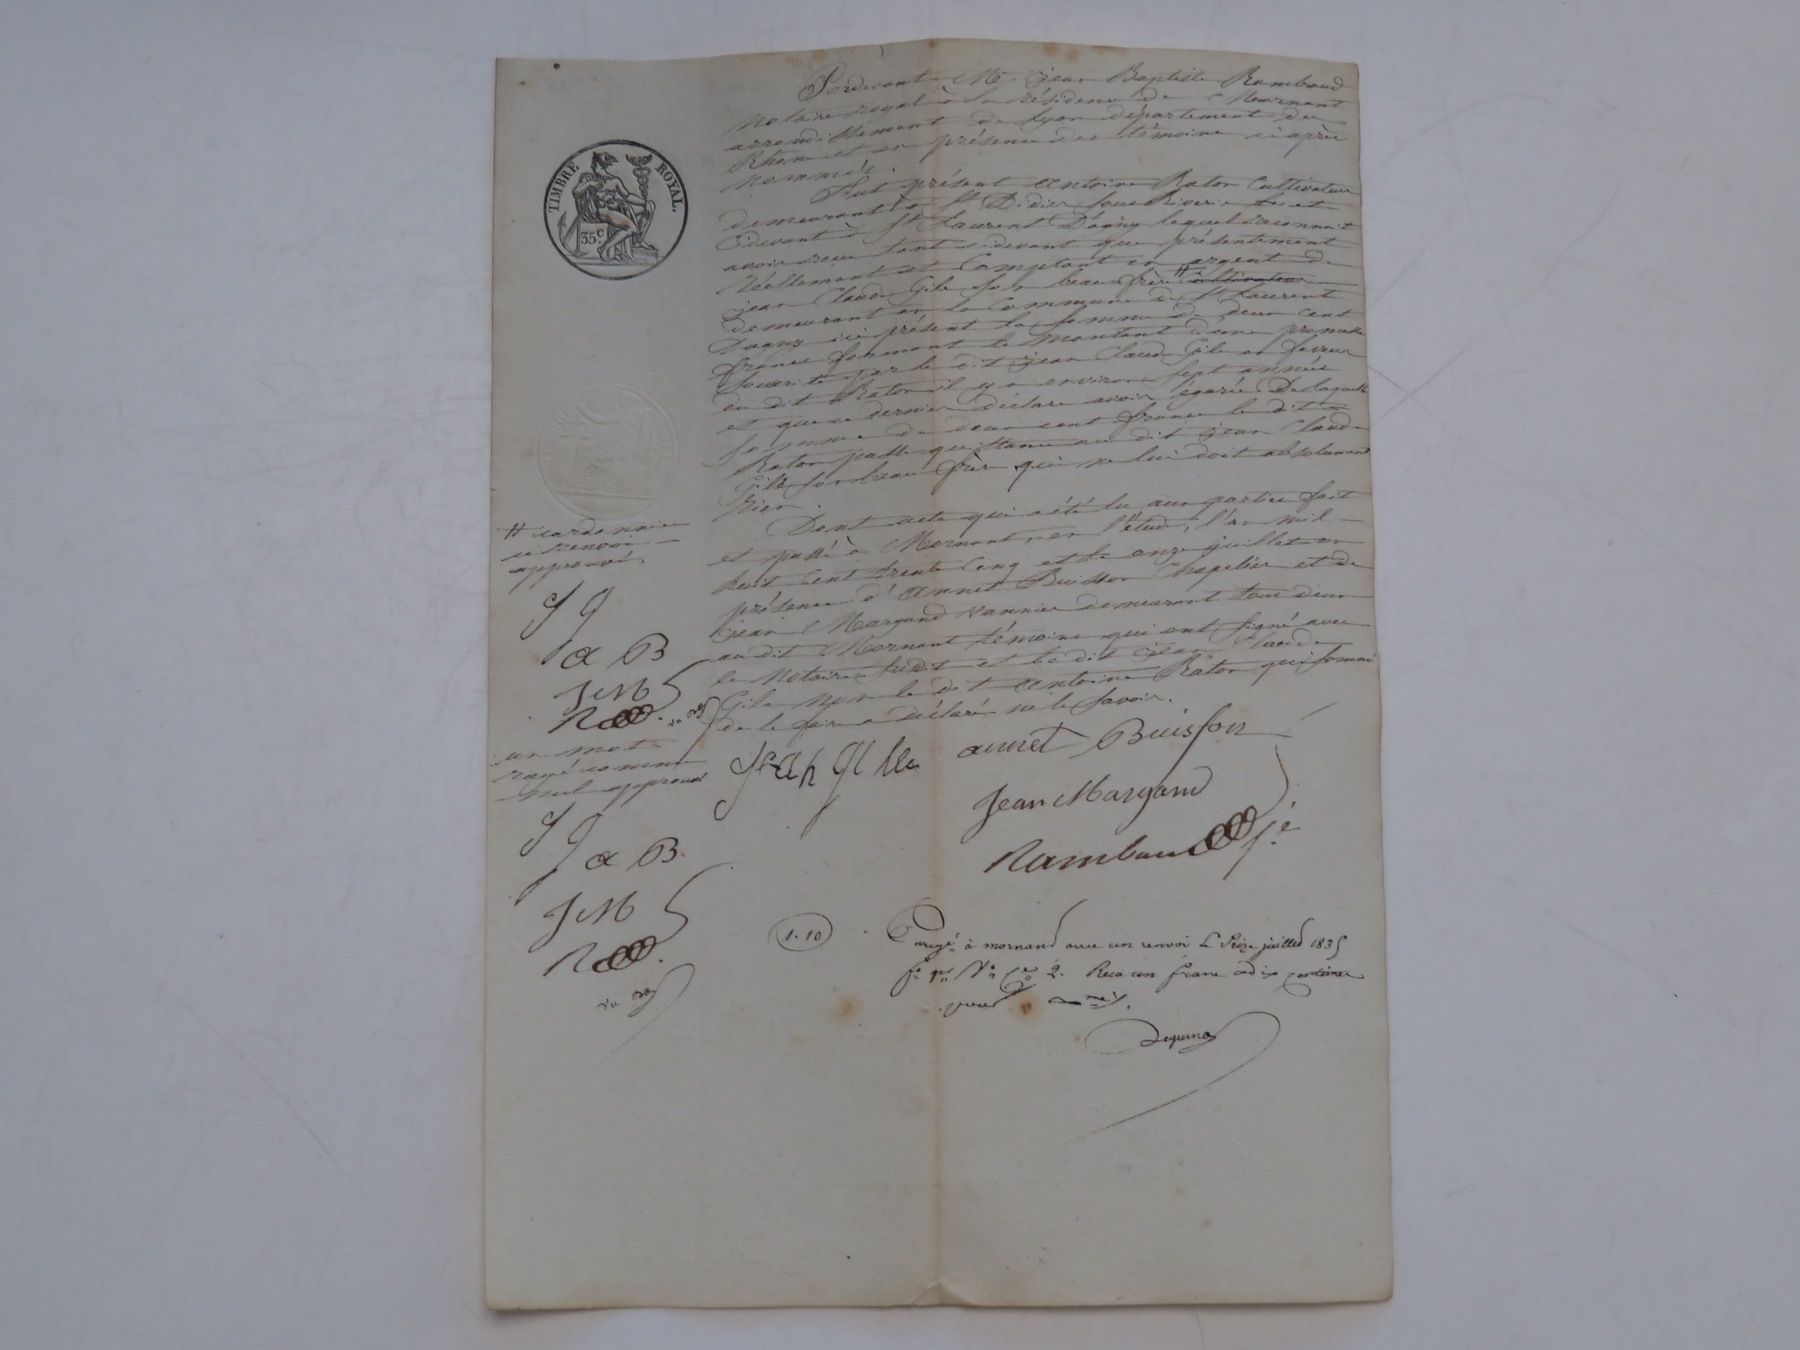 TIMBRE ROYAL.
35 c.
Pardevant Me. jean Baptiste Rambaud
notaire royal à la résidence de Mornant
arrondissement de Lyon département du
Rhone et en présence des témoins ci après
nommés.
Fut présent antoine Raton Cultivateur
demeurant à St Didier sous Riverie et
Cidevant à St Laurent Dagny lequel reconnait
avoir reçu tant cidevant que présentement
réellement et Comptant en argent de
jean Claude Gile son beau frère # cultivateur
demeurant en la Commune de St Laurent
Dagny ici présent la somme de deux cent
francs formant le montant d'une promesse
souscrite par le dit jean Claude Gile en faveur
du dit Raton il y a environ sept année
et que ce dernier déclare avoir égarée. De laquelle
somme de deux cent francs le dit
Raton passe quittance au dit jean Claude
Gile son beau frère qui ne lui doit absolument
rien.
Dont acte qui a été lu aux parties fait
et passé à Mornant, en l'étude, l'an mil
huit cent trente cinq et le onze juillet en
présence d'annet Buisson chapelier et de
jean Margand vannier demeurant tout deux
audit Mornant témoins qui ont signé avec
le Notaire susdit et le dit jean Claude
Gile non le dit antoine Raton qui somai
de le faire a déclaré ne le savoir.
# cardonnier
ce renvoi
approuvé
J G
a B
J M
R
un mot
rayé comme
nul approuvé
J G
a B.
J M
R
jean Gille
annet Buisson
Jean Margand
Rambaud
1.10
Enregé à mornant avec un renvoi le Seize juillet 1835
fo Vo Ce 2. Reçu un franc et dix centimes